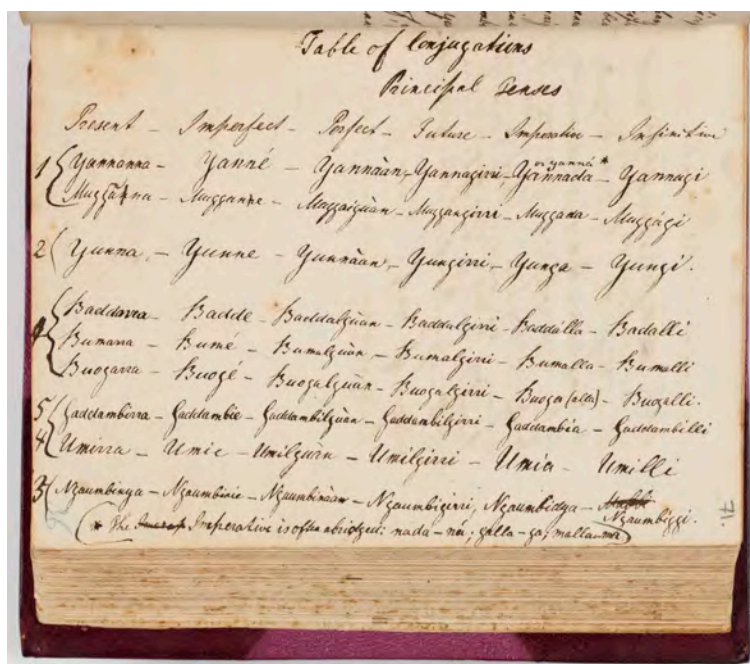 Table of Conjugations
Principal Tenses
Present – Imperfect – Perfect – Future – Imperative – Infinitive
1 Yannanna – Yanné – Yannàan, Yannagirri, Yannada – Yannagi
or yanná *
Muggana – Muggaigùan – Muggangirri – Muggada – Muggági
2 Yunna, – Yunne – Yunnàan, – Yungirri, – Yunga – Yungi.
Baddarra – Badde – Baddalgùan – Baddalgirri – Baddálla – Badalli
Bumarra – Bumé – Bumalgùan – Bumalgirri – Bumalla – Bumalli
Buogarra – Buogé – Buogalgùan – Buogalgirri – Buoga (alla) – Bugalli.
5 Gaddambirra – Gaddambie – Gaddambilgùan – Gaddambilgirri – Gaddambia – Gaddambilli
4 Umirra – Umie – Umilgùàn – Umilgirri – Umia – Umilli
3 Ngaumbinya – Ngaumbinie – Ngaumbinàan – Ngaumbigirri, Ngaumbidya –
Ngaumbiggi.
(* The Imperative is often abridged: nada – ná; galla – ga; malla ma)
71.